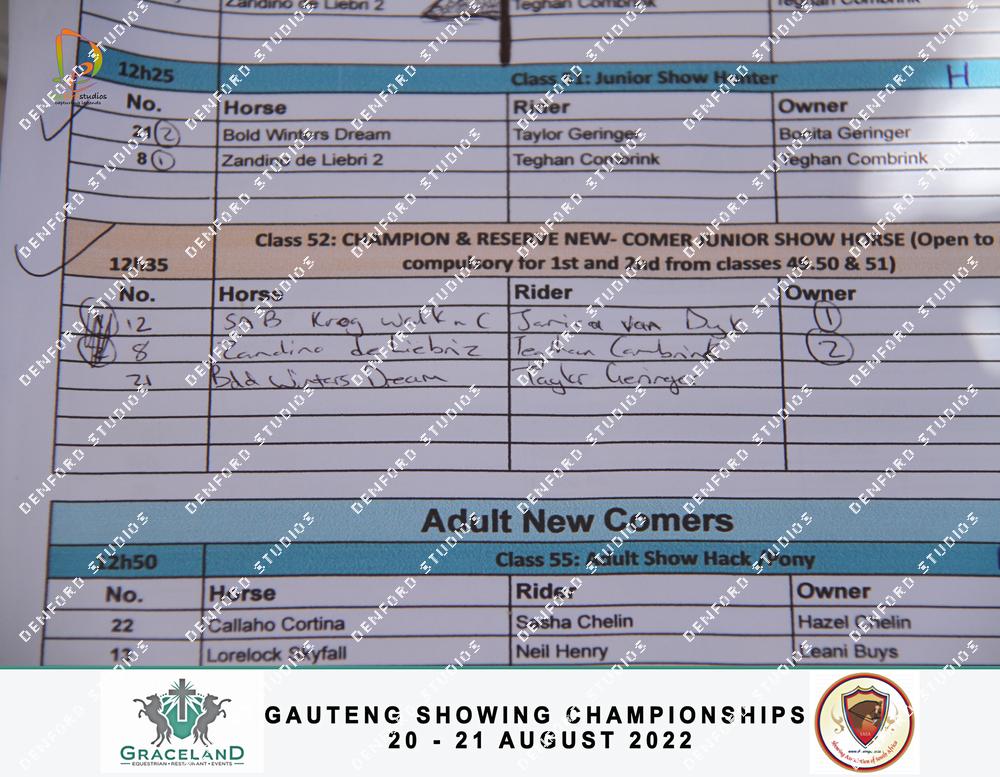 Zandino de Liebri 2 Teghan Combrink Teghan Combrink
12h25 Class 51: Junior Show Hunter H
No. Horse Rider Owner
21 2 Bold Winters Dream Taylor Geringer Bonita Geringer
8 1 Zandino de Liebri 2 Teghan Combrink Teghan Combrink
Class 52: CHAMPION & RESERVE NEW- COMER JUNIOR SHOW HORSE (Open to
12h35 compulsory for 1st and 2nd from classes 49.50 & 51)
No. Horse Rider Owner
12 Krog Walk n C van Dyk 1
8 Zandino de Liebriz Teghan Combrink 2
21 Bold Winters Dream Taylor Geringer
Adult New Comers
12h50 Class 55: Adult Show Hack /Pony
No. Horse Rider Owner
22 Callaho Cortina Sasha Chelin Hazel Chelin
13 Lorelock Skyfall Neil Henry Leani Buys
studios
capturing legends
DENFORD STUDIOS
GRACELAND
EQUESTRIAN • RESTAURANT • EVENTS
GAUTENG SHOWING CHAMPIONSHIPS
20 - 21 AUGUST 2022
Showing Association of South Africa